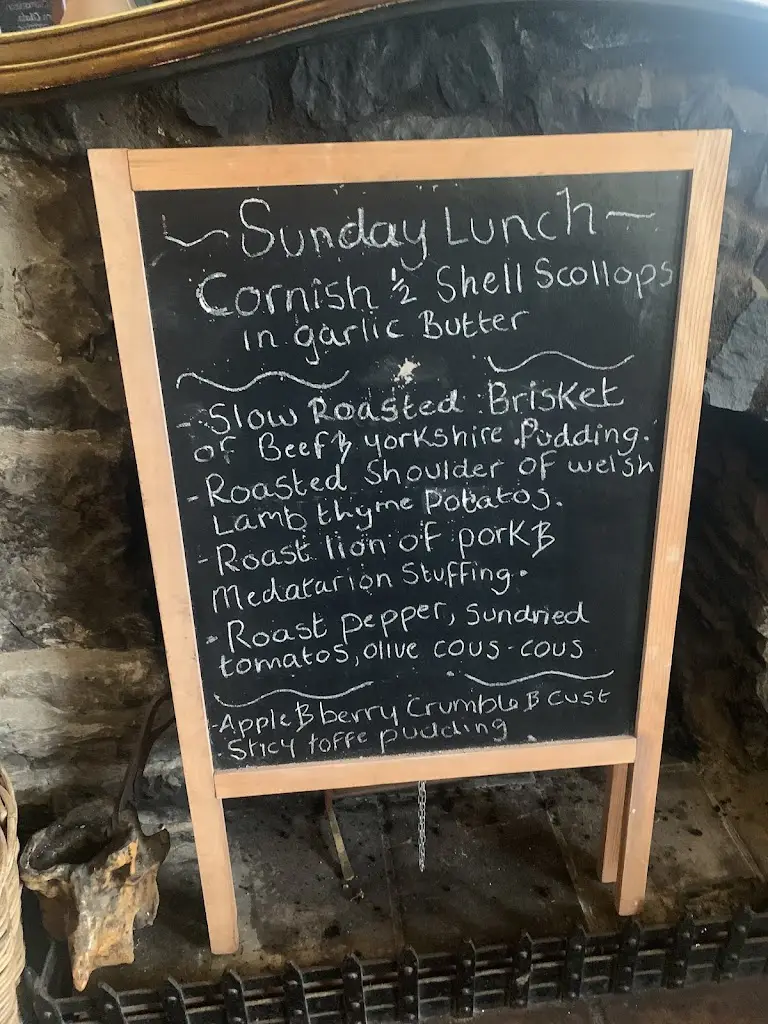 ~ Sunday Lunch ~
Cornish ½ Shell Scollops
in garlic Butter
- Slow Roasted Brisket
of Beef & Yorkshire Pudding.
- Roasted Shoulder of welsh
Lamb thyme Potatos.
- Roast lion of pork &
Medatarion Stuffing.
- Roast pepper, sundried
tomatos, olive cous-cous
- Apple & berry Crumble & Cust
- Sticy toffe pudding